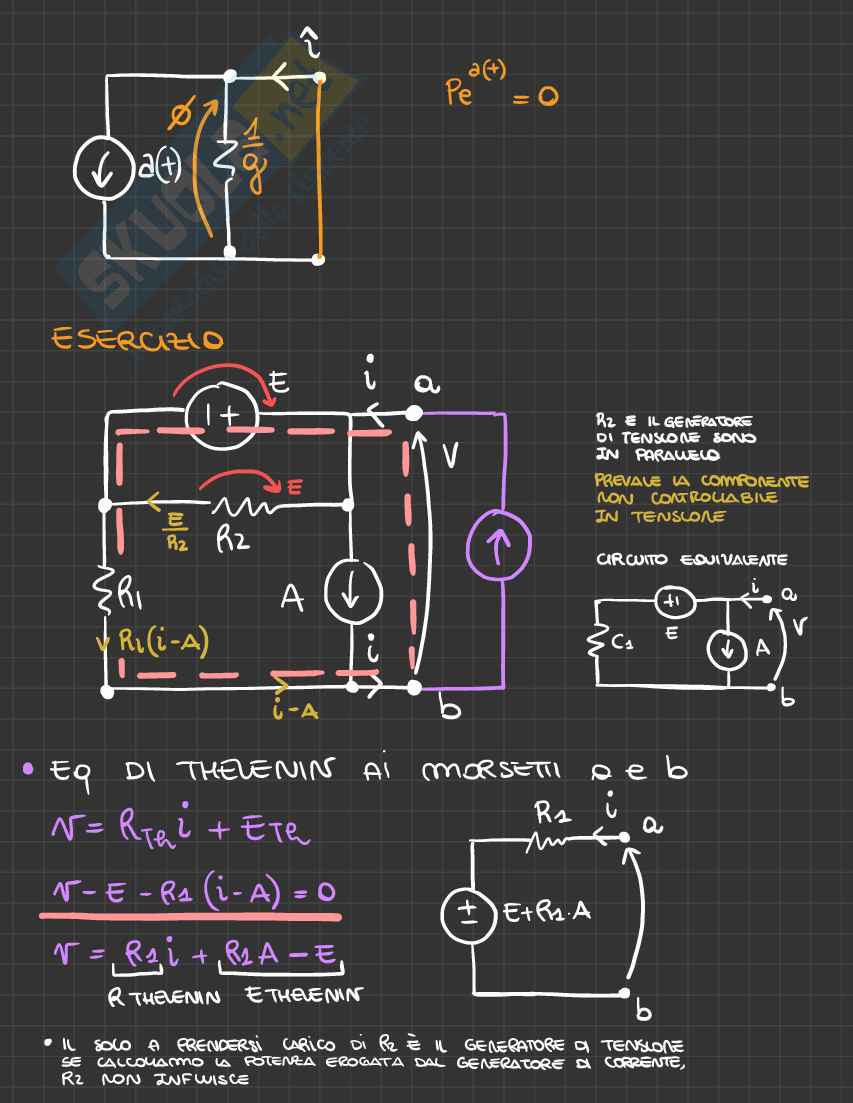 î
Pe^a(t) = 0
∅
a(t)
1/g
SKUOLA.net
ESERCIZIO
E
i
a
- +
E
V
E/R2
R2
R1
A
R1(i-A)
i
i-A
b
R2 E IL GENERATORE
DI TENSIONE SONO
IN PARALLELO
PREVALE LA COMPONENTE
NON CONTROLLABILE
IN TENSIONE
CIRCUITO EQUIVALENTE
i
a
+ -
E
C1
A
V
b
• Eq DI THEVENIN AI MORSETTI a e b
v = RTh i + ETh
v - E - R1 (i-A) = 0
v = R1 i + R1A - E
R THEVENIN E THEVENIN
R1
i
a
±
E+R1·A
b
• IL SOLO A PRENDERSI CARICO DI R2 È IL GENERATORE DI TENSIONE
SE CALCOLIAMO LA POTENZA EROGATA DAL GENERATORE DI CORRENTE,
R2 NON INFLUISCE